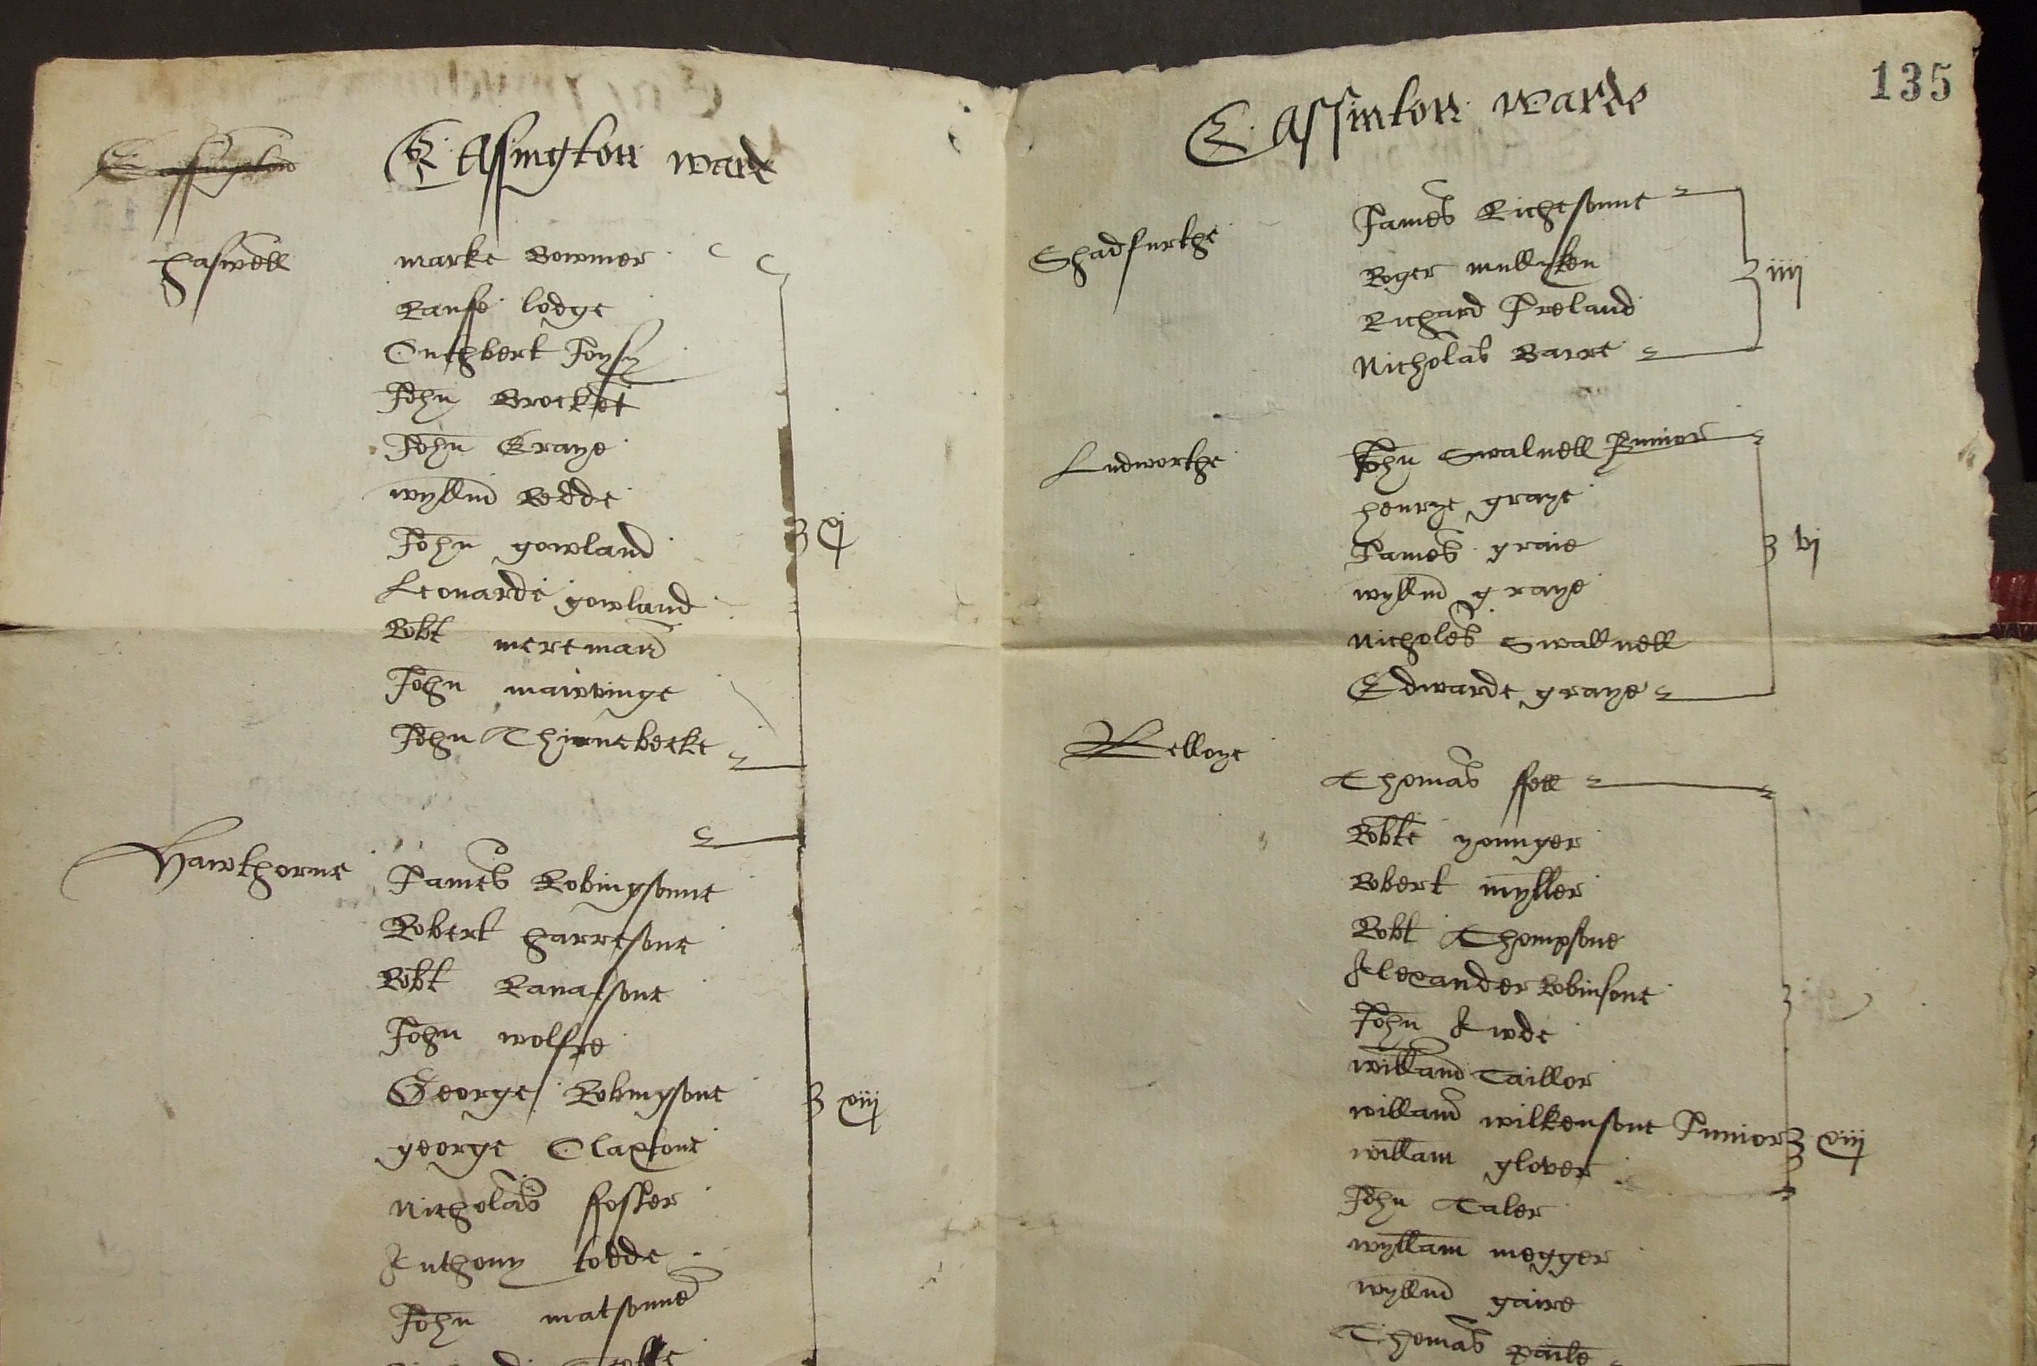 135
Easington
Easington ward
haswell
marke Bowmer
Rauffe lodge
Cuthbert Joysy
John Brocket
John Graye
wyllm Dodde
John gowland
xj
Leonarde gowland
Robt mereman
John
John Thirnebecke
Hawthorne
James Robingsonne
Robert harresone
Robt
John wolfre
George Robingsone
xiij
george Claxtone
Nicholas ffoster
Anthony todde
John matsonne
Eassinton warde
Shadfurthe
James Richesonne
Roger mullyken
iiij
Richard Ireland
Nicholas Barre
Ludworthe
John Swalnell Junior
henrye graye
James graie
vj
wyllm graye
Nicholes Swallnell
Edwarde graye
Kelloye
Thomas ffell
Robte younger
Robert myller
Robt Thompsone
Alexander Robinsone
John Awde
willam Taillor
willam wilkensone Junior
xiij
willam glover
John Taler
wyllam megger
wyllm gaire
Thomas